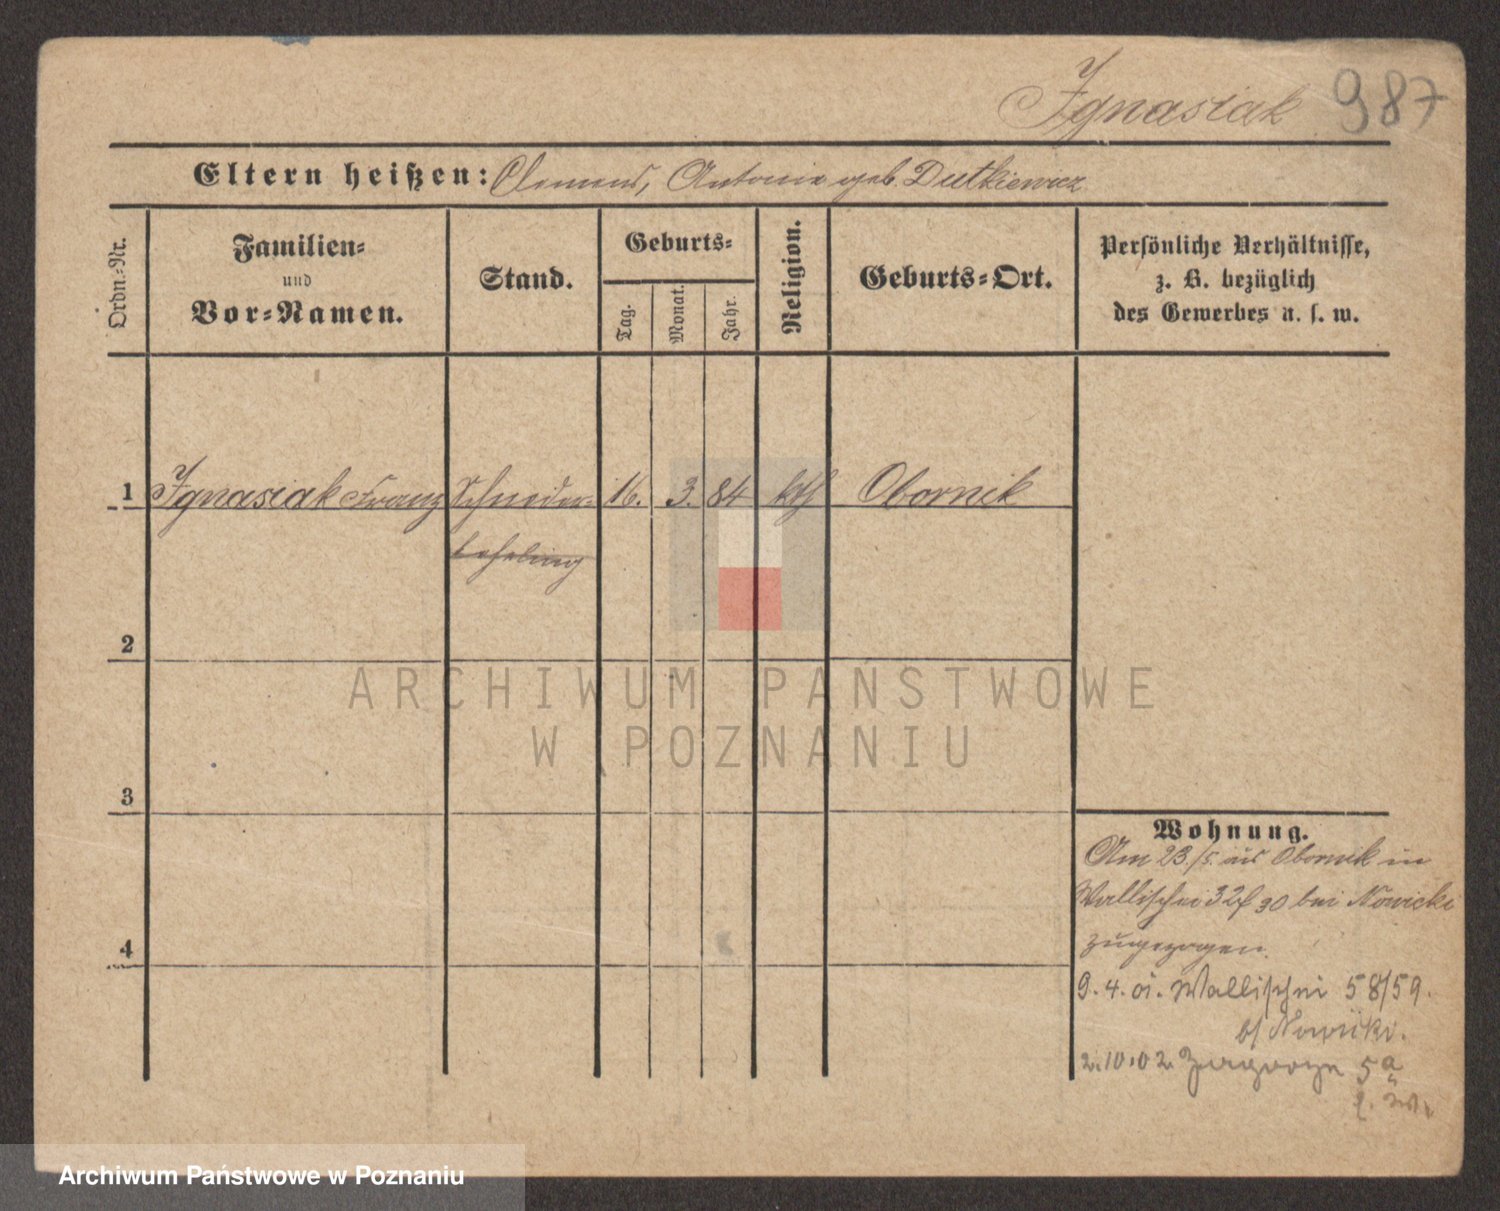 Ignasiak 987
Eltern heißen: Clemens, Antonie geb. Dutkiewicz
Ordn.-Nr.
Familien-
und
Vor-Namen.
Stand.
Geburts-
Tag.
Monat.
Jahr.
Religion.
Geburts-Ort.
Persönliche Verhältnisse,
z. B. bezüglich
des Gewerbes u. s. w.
1 Ignasiak Franz Schneider- 16. 3. 84 kth Obornik
lehrling
2
ARCHIWUM PAŃSTWOWE
W POZNANIU
3
Wohnung.
Am 23./5. aus Obornik in
Wallischei 30 bei Nowicki
zugezogen.
4
9. 4. 01. Wallischei 58/59.
b/ Nowicki.
2. 10. 02 5a
Archiwum Państwowe w Poznaniu